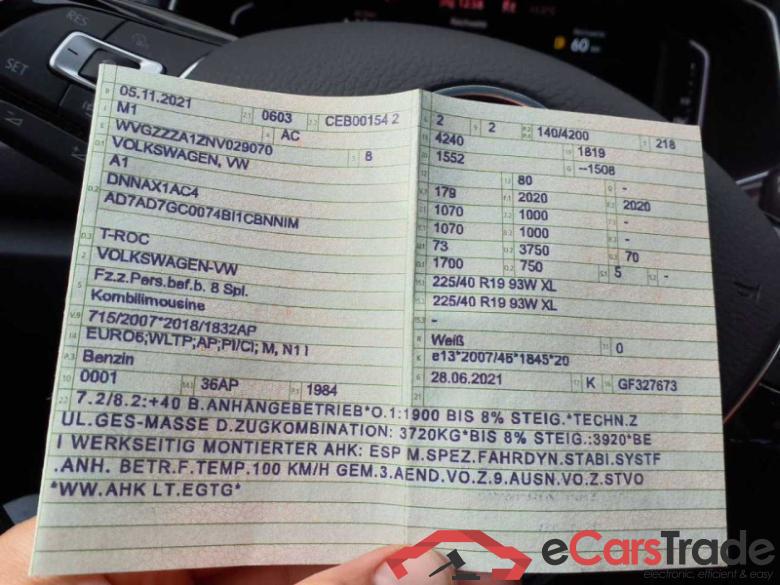 RES
SET
12:58
60
B 05.11.2021 2.1 0603 2.2 CEB00154 2
J M1 4 AC
E WVGZZZA1ZNV029070 3 8
D.1 VOLKSWAGEN, VW
A1
D.2 DNNAX1AC4
AD7AD7GC0074BI1CBNNIM
D.3 T-ROC
2 VOLKSWAGEN-VW
5 Fz.z.Pers.bef.b. 8 Spl.
Kombilimousine
V.9 715/2007*2018/1832AP
14 EURO6;WLTP;AP;PI/CI; M, N1 I
P.3 Benzin
10 0001 14.1 36AP P.1 1984
L 2 9 2 P.2 P.4 140/4200 T 218
18 4240 19 1819
20 1552 G --1508
12 - 13 80 Q -
V.7 179 F.1 2020 F.2 2020
7.1 1070 7.2 1000 7.3 -
8.1 1070 8.2 1000 8.3 -
U.1 73 U.2 3750 U.3 70
O.1 1700 O.2 750 S.1 5 S.2 -
15.1 225/40 R19 93W XL
15.2 225/40 R19 93W XL
15.3 -
R Weiß 11 0
K e13*2007/46*1845*20
6 28.06.2021 17 K 16 GF327673
21
22 7.2/8.2:+40 B.ANHÄNGEBETRIEB*O.1:1900 BIS 8% STEIG.*TECHN.Z
UL.GES-MASSE D.ZUGKOMBINATION: 3720KG*BIS 8% STEIG.:3920*BE
I WERKSEITIG MONTIERTER AHK: ESP M.SPEZ.FAHRDYN.STABI.SYSTF
.ANH. BETR.F.TEMP.100 KM/H GEM.3.AEND.VO.Z.9.AUSN.VO.Z.STVO
*WW.AHK LT.EGTG*
eCarsTrade
electronic, efficient & easy